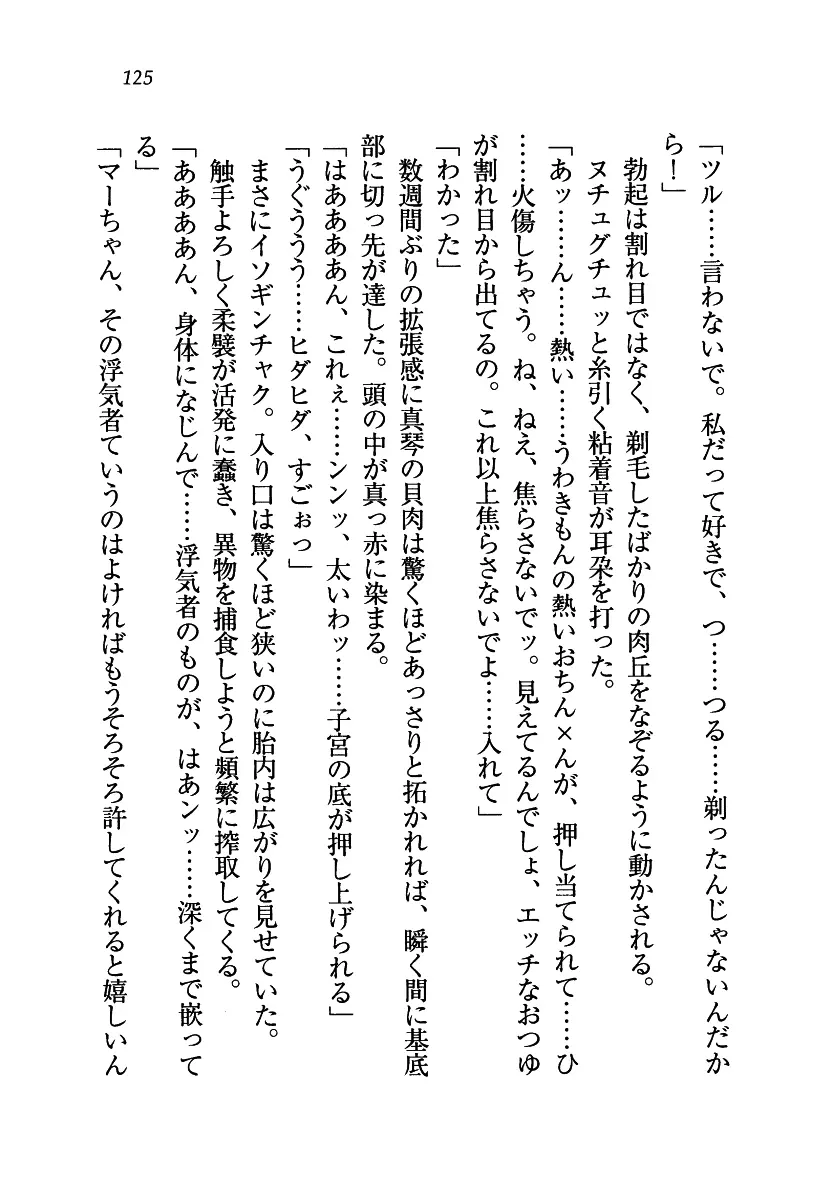 125
「ツル……言わないで。私だって好きで、つ……つる……剃ったんじゃないんだか
ら！」
勃起は割れ目ではなく、剃毛したばかりの肉丘をなぞるように動かされる。
ヌチュグチュッと糸引く粘着音が耳朶を打った。
「あッ……ん……熱い……うわきもんの熱いおちん×んが、押し当てられて……ひ
……火傷しちゃう。ね、ねえ、焦らさないでッ。見えてるんでしょ、エッチなおつゆ
が割れ目から出てるの。これ以上焦らさないでよ……入れて」
「わかった」
数週間ぶりの拡張感に真琴の貝肉は驚くほどあっさりと拓かれれば、瞬く間に基底
部に切っ先が達した。頭の中が真っ赤に染まる。
「はああああん、これぇ……ンンッ、太いわッ……子宮の底が押し上げられる」
「うぐううう……ヒダヒダ、すごぉっ」
まさにイソギンチャク。入り口は驚くほど狭いのに胎内は広がりを見せていた。
触手よろしく柔襞が活発に蠢き、異物を捕食しようと頻繁に搾取してくる。
「ああああん、身体になじんで……浮気者のものが、はあンッ……深くまで嵌って
る」
「マーちゃん、その浮気者ていうのはよければもうそろそろ許してくれると嬉しいん